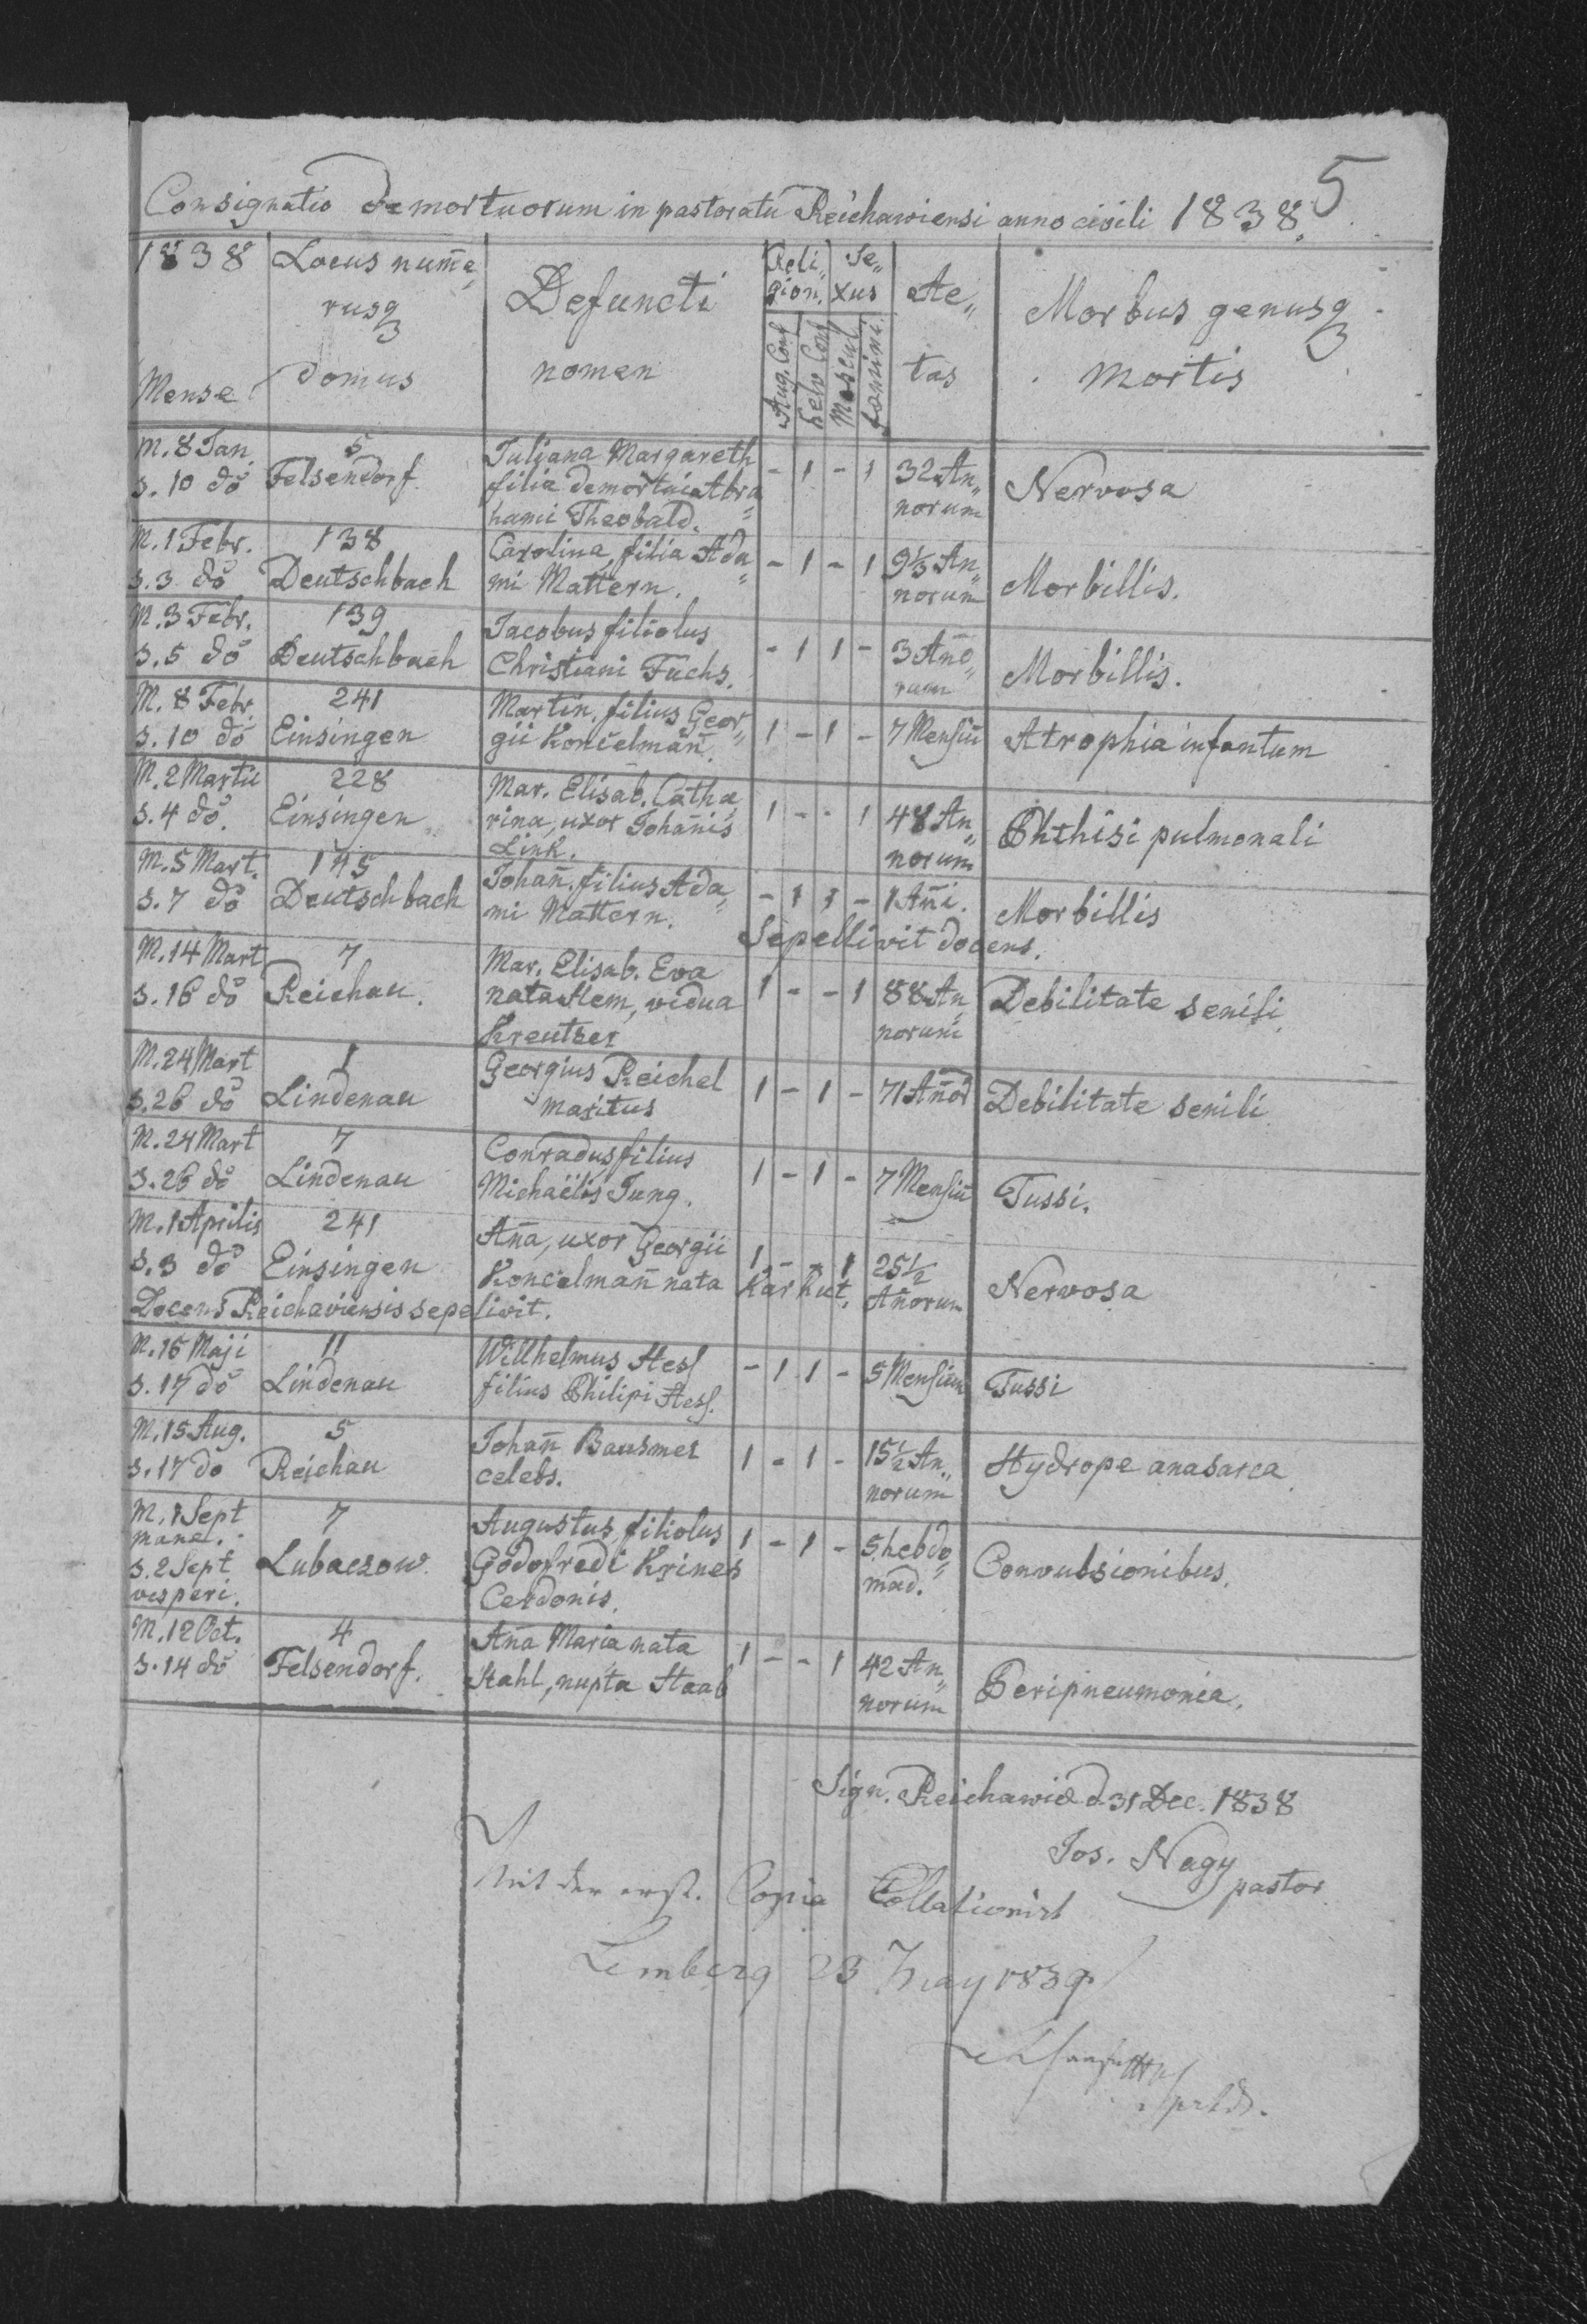 5
Consignatio demortuorum in pastoratu Reichawiensi anno civili 1838.
1838
Mense
Locus num̅e„
rusq3
domus
Defuncti
nomen
Reli„
gion.
Aug. Conf
helv Conf
Se„
xus
Mascul.
foemini.
Ae„
tas
Morbus genusq3
mortis
M. 8 Jan. 5 Juliana Margareth - 1 - 1 32 An„ Nervosa
s. 10 do Felsendorf. filia demortui Abra„ norum
hami Theobald.
M. 1 Febr. 138 Carolina, filia Ada„ - 1 - 1 9⅓ An„ Morbillis.
s. 3 do Deutschbach mi Mattern. norum
M. 3 Febr. 139 Jacobus filiolus - 1 1 - 3 An̅o„ Morbillis.
s. 5 do Deutschbach Christiani Fuchs. rum
M. 8 Febr 241 Martin, filius Geor„ 1 - 1 - 7 Mensiu̅ Atrophia infantum
s. 10 do Einsingen gii Koncelman̅.
M. 2 Martii 228 Mar. Elisab. Catha„ 1 - - 1 48 An„ Phthisi pulmonali
s. 4 do. Einsingen rina, uxor Johan̅is norum
Link.
M. 5 Mart. 145 Johan̅. filius Ada„ - 1 1 - 1 An̅i. Morbillis
s. 7 do Deutschbach mi Mattern. Sepellivit docens.
M. 14 Mart 7 Mar. Elisab. Eva 1 - - 1 88 An„ Debilitate senili
s. 16 do Reichau. nata Hem, vidua norum
Kreutzer
M. 24 Mart 1 Georgius Reichel 1 - 1 - 71 An̅or Debilitate senili
s. 26 do Lindenau maritus
M. 24 Mart 7 Conradus filius 1 - 1 - 7 Mensiu̅ Tussi.
s. 26 do Lindenau Michaëlis Jung.
M. 1 Aprilis 241 An̅a, uxor Georgii 1 - - 1 25½ Nervosa
s. 3 do Einsingen Koncelman̅ nata Karhut. An̅orum
Docens Reichaviensis sepelivit.
M. 16 Maji 11 Willhelmus Hess - 1 1 - 5 Mensium Tussi
s. 17 do Lindenau filius Philipi Hess.
M. 15 Aug. 5 Johan̅ Bausmer 1 - 1 - 15½ An„ Hydrope anasarca
s. 17 do Reichau celebs. norum
M. 1 Sept 7 Augustus, filiolus 1 - 1 - 5 hebdo„ Convulsionibus.
mane. Lubaczow. Godofredi Krines mad.
s. 2 Sept Cerdonis.
vesperi.
M. 12 Oct. 4 An̅a Maria nata 1 - - 1 42 An„ Peripneumonia.
s. 14 do Felsendorf. Stahl, nupta Staab norum
Sign. Reichawiae d. 31 Dec. 1838
Jos. Nagy
pastor
Mit der erst. Copia Collationirt
Lemberg 23 May 1839